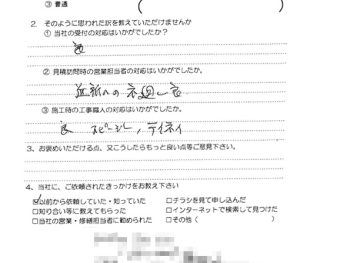 ③ 普通 ( )
2. そのように思われた訳を教えていただけませんか
① 当社の受付の対応はいかがでしたか?
良
② 見積訪問時の営業担当者の対応はいかがでしたか。
近所への
③ 施工時の工事職人の対応はいかがでしたか。
良 スピーード, テイネイ
3、お褒めいただける点、又こうしたらもっと良い点等ご意見下さい。
4、当社に、ご依頼されたきっかけをお教え下さい
☑以前から依頼していた・知っていた □チラシを見て申し込んだ
□知り合い等に教えてもらった □インターネットで検索して見つけた
□当社の営業・修繕担当者に勧められた □その他 ( )